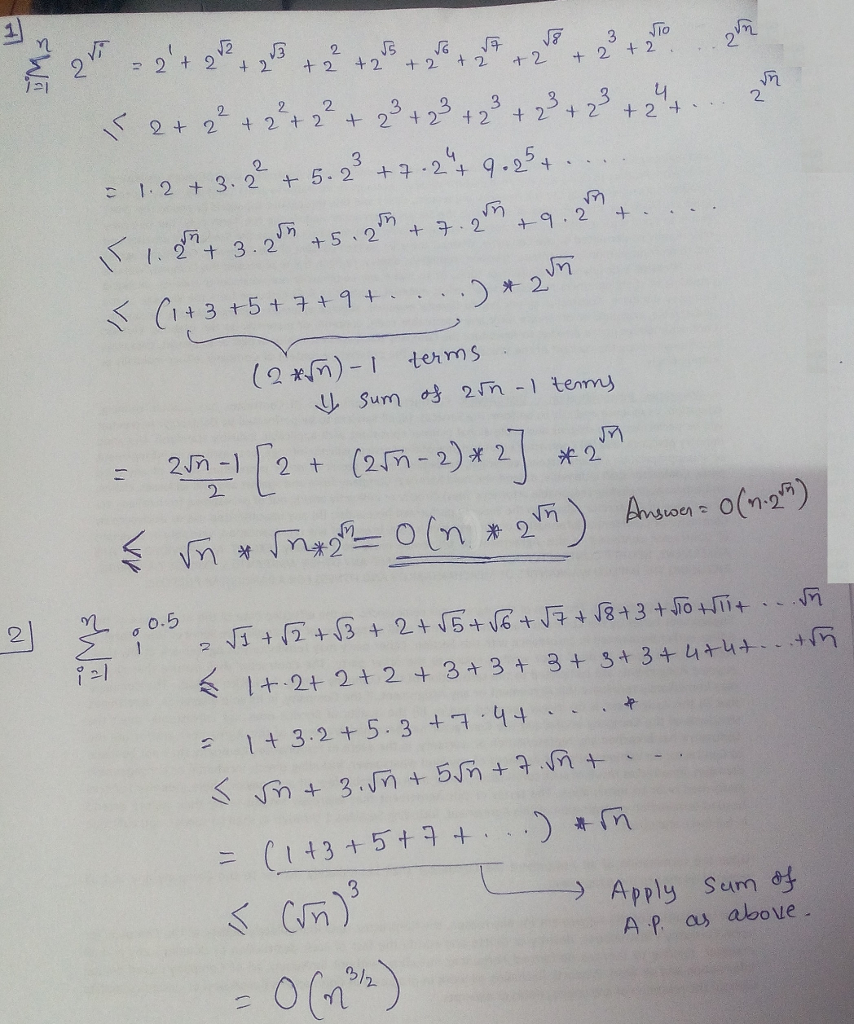 1] n∑i=1 2^√i = 2^1 + 2^√2 + 2^√3 + 2^2 + 2^√5 + 2^√6 + 2^√7 + 2^√8 + 2^3 + 2^√10 . . . . 2^√n
≤ 2 + 2^2 + 2^2 + 2^2 + 2^3 + 2^3 + 2^3 + 2^3 + 2^3 + 2^4 + . . . 2^√n
= 1.2 + 3.2^2 + 5.2^3 + 7.2^4 + 9.2^5 + . . . .
≤ 1.2^√n + 3.2^√n + 5.2^√n + 7.2^√n + 9.2^√n + . . . .
≤ (1+3+5+7+9+ . . . . .) * 2^√n
(2*√n)-1 terms.
⇓ sum of 2√n -1 terms
= (2√n -1)/2 [2 + (2√n -2)*2] * 2^√n
≤ √n * √n*2^√n = O(n * 2^√n) Answer = O(n.2^√n)
2] n∑i=1 i^0.5 = √1 + √2 + √3 + 2 + √5 + √6 + √7 + √8 + 3 + √10 + √11 + . . . √n
≤ 1 + 2 + 2 + 2 + 3 + 3 + 3 + 3 + 3 + 4 + 4 + . . . + √n
= 1 + 3.2 + 5.3 + 7.4 + . . . . *
≤ √n + 3.√n + 5√n + 7.√n + . . .
= (1+3+5+7+ . . .) * √n
≤ (√n)^3 → Apply sum of
A.P. as above.
= O(n^3/2)